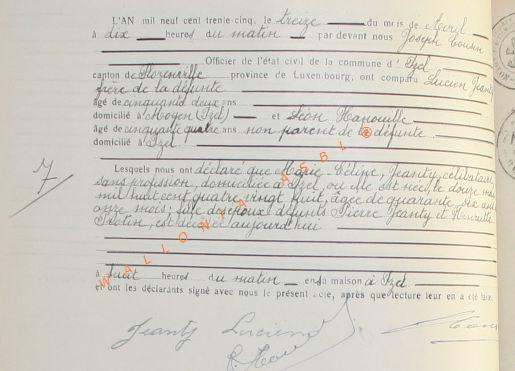 L'AN mil neuf cent trente-cinq, le treize du mois de Avril
à dix heures du matin par devant nous Joseph
Officier de l'état civil de la commune d'Izel
canton de Florenville province de Luxembourg, ont comparu Lucien Jeanty
frère de la défunte
âgé de cinquante deux ans
domicilié à Moyen (Izel) et Léon Hanouille
âgé de cinquante quatre ans non parent de la défunte
domicilié à Izel
7
Lesquels nous ont déclaré que Marie Céline, Jeanty, célibataire
sans profession, domiciliée à Izel, où elle est née, le douze mai
mil huit cent quatre vingt huit, âgée de quarante six ans
onze mois; fille des époux défunts Pierre Jeanty et Henriette
est décédée aujourd'hui
à huit heures du matin en sa maison à Izel
et ont les déclarants signé avec nous le présent acte, après que lecture leur en a été faite.
Jeanty Lucien
WALLONIA ASBL ®